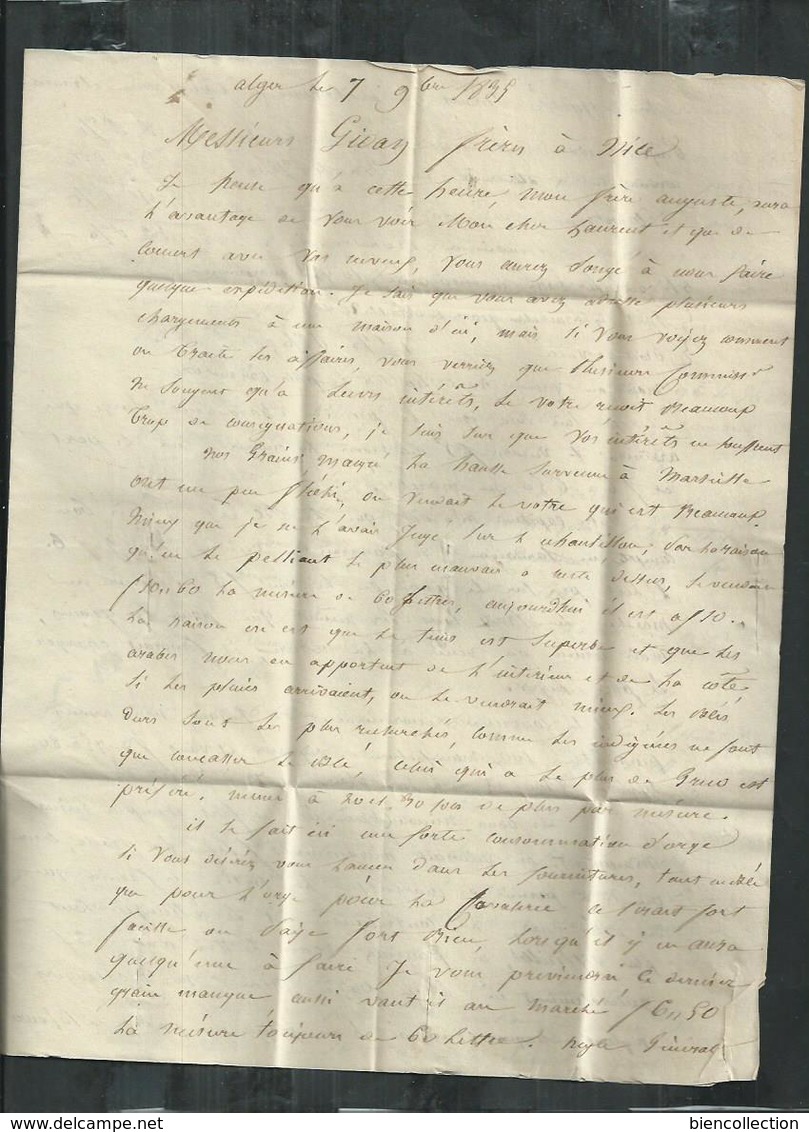 alger le 7 9bre 1835
Messieurs Givan frères à Nice
Je pense qu'a cette heure, mon frère auguste, aura
l'avantage de vous voir Mon cher Laurent et que de
concert avec vos neveux, vous aurez songé à nous faire
quelque expédition. Je sais que vous avez adressé plusieurs
chargements à une maison d'ici, mais si vous voyez comment
on traite les affaires, vous verriez que plusieurs Commiss.res
ne songent qu'a leurs intérêts, le votre reçoit Beaucoup
trop de consignations, je suis sur que vos intérêts en souffrent
Nos Grains malgré la hausse survenue à Marseille
ont un peu fléchi, on vendait le votre qui est Beaucoup
mieux que je ne l'avais Jugé sur l'echantillon, par la raison
qu'en le le plus mauvais a reste dessus, se vendait
f 10,,60 la mesure de 60 littres, aujourdhui il est a f 10..
La raison en est que le tems est superbe et que les
arabes nous en apportent de l'intérieur et de la côte
Si les pluies arrivaient, on le vendrait mieux. Les blés
durs sont les plus recherchés, comme les indigènes ne font
que concasser le blé, celui qui a le plus de Gruo est
préféré, même à 20 et 30 sous de plus par mesure.
il se fait ici une forte consommation d'orge
Si Vous désirez vous lancer dans les fournitures, tant en blé
que pour l'orge pour la Cavalerie ce serait fort
facille on paye fort Bien, lorsqu'il y en aura
quelqu'une à faire Je vous previendrai, ce dernier
grain manque aussi vaut il au marché f 6,,50
la mésure toujours de 60 littre. regle Général
biencollection